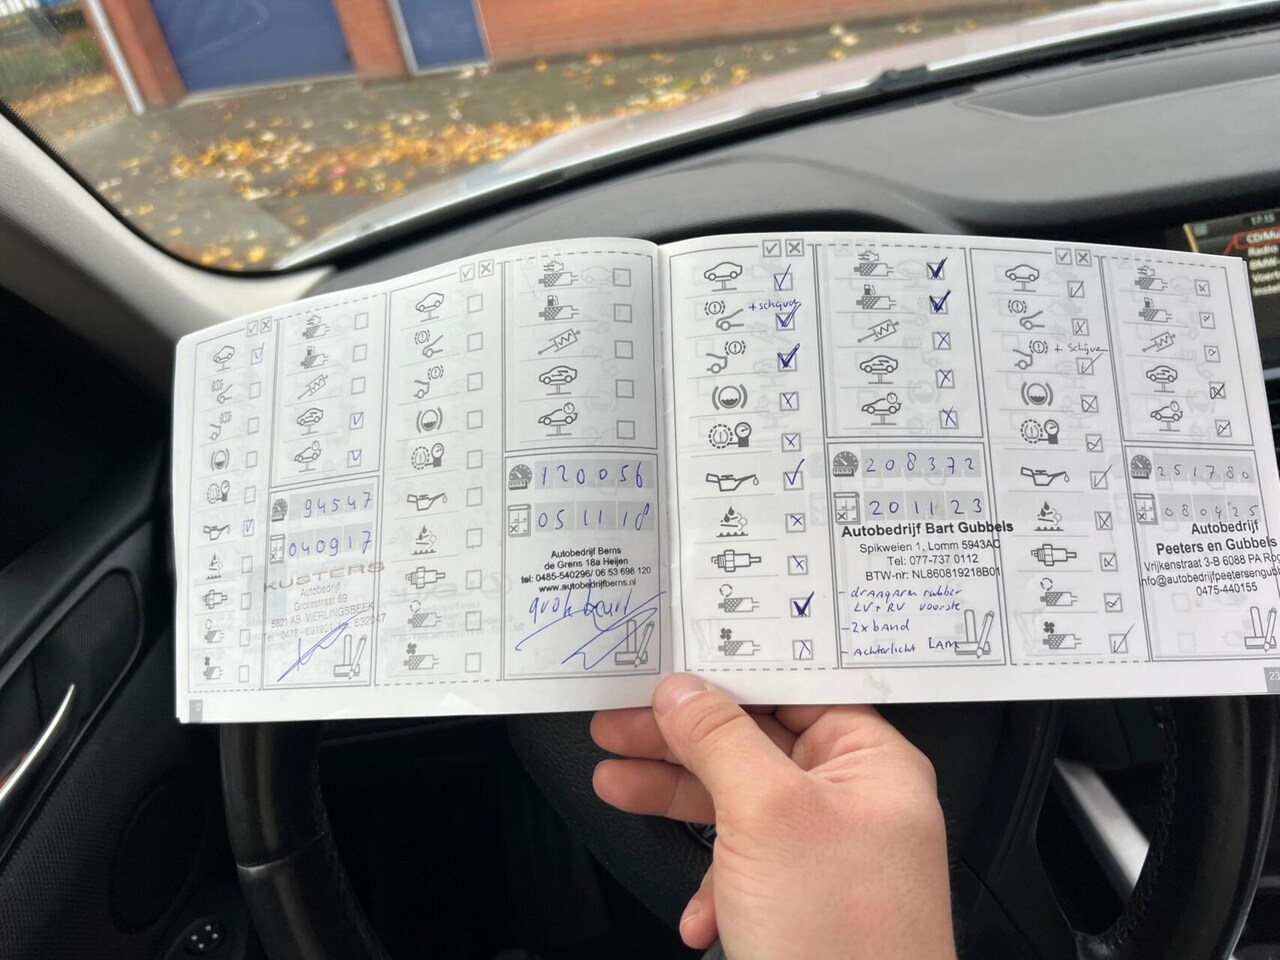 94547
040917
KUSTERS
Autobedrijf
Grotestraat 69
5821 AB VIERLINGSBEEK
120056
051118
Autobedrijf Berns
de Grens 18a Heijen
tel: 0485-540296/ 06 53 698 120
www.autobedrijfberns.nl
grote beurt
+ schijven
208372
201123
Autobedrijf Bart Gubbels
Spikweien 1, Lomm 5943AC
Tel: 077-737 0112
BTW-nr: NL860819218B01
- draagarm rubber
LV + RV voorste
- 2x band
- Achterlicht Lamp
+ schijven
251780
080425
Autobedrijf
Peeters en Gubbels
Vrijkenstraat 3-B 6088 PA Rog
info@autobedrijfpeetersengubb
0475-440155
23
17:15
CD/Mu
Radio